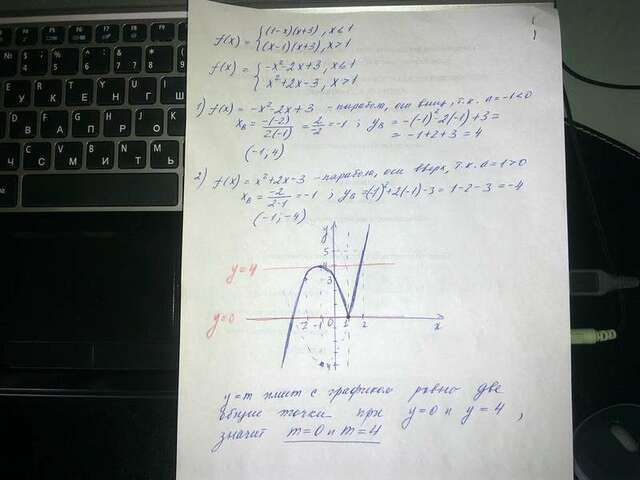 f(x) = { (1-x)(x+3), x≤1
(x-1)(x+3), x>1
f(x) = { -x²-2x+3, x≤1
x²+2x-3, x>1
1) f(x) = -x²-2x+3 - парабола, оси вниз, т.к. a=-1<0
x_B = -(-2)/2(-1) = 2/-2 = -1 ; y_B = -(-1)² 2(-1)+3 =
= -1+2+3 = 4
(-1; 4)
2) f(x) = x²+2x-3 - парабола, оси вверх, т.к. a=1>0
x_B = -2/2·1 = -1 ; y_B = (-1)²+2(-1)-3 = 1-2-3 = -4
(-1; -4)
y
5
y=4
4
3
y=0
-2 -1 0 1 2 x
-4
y=m имеет с графиком ровно две
общие точки при y=0 и y=4,
значит m=0 и m=4